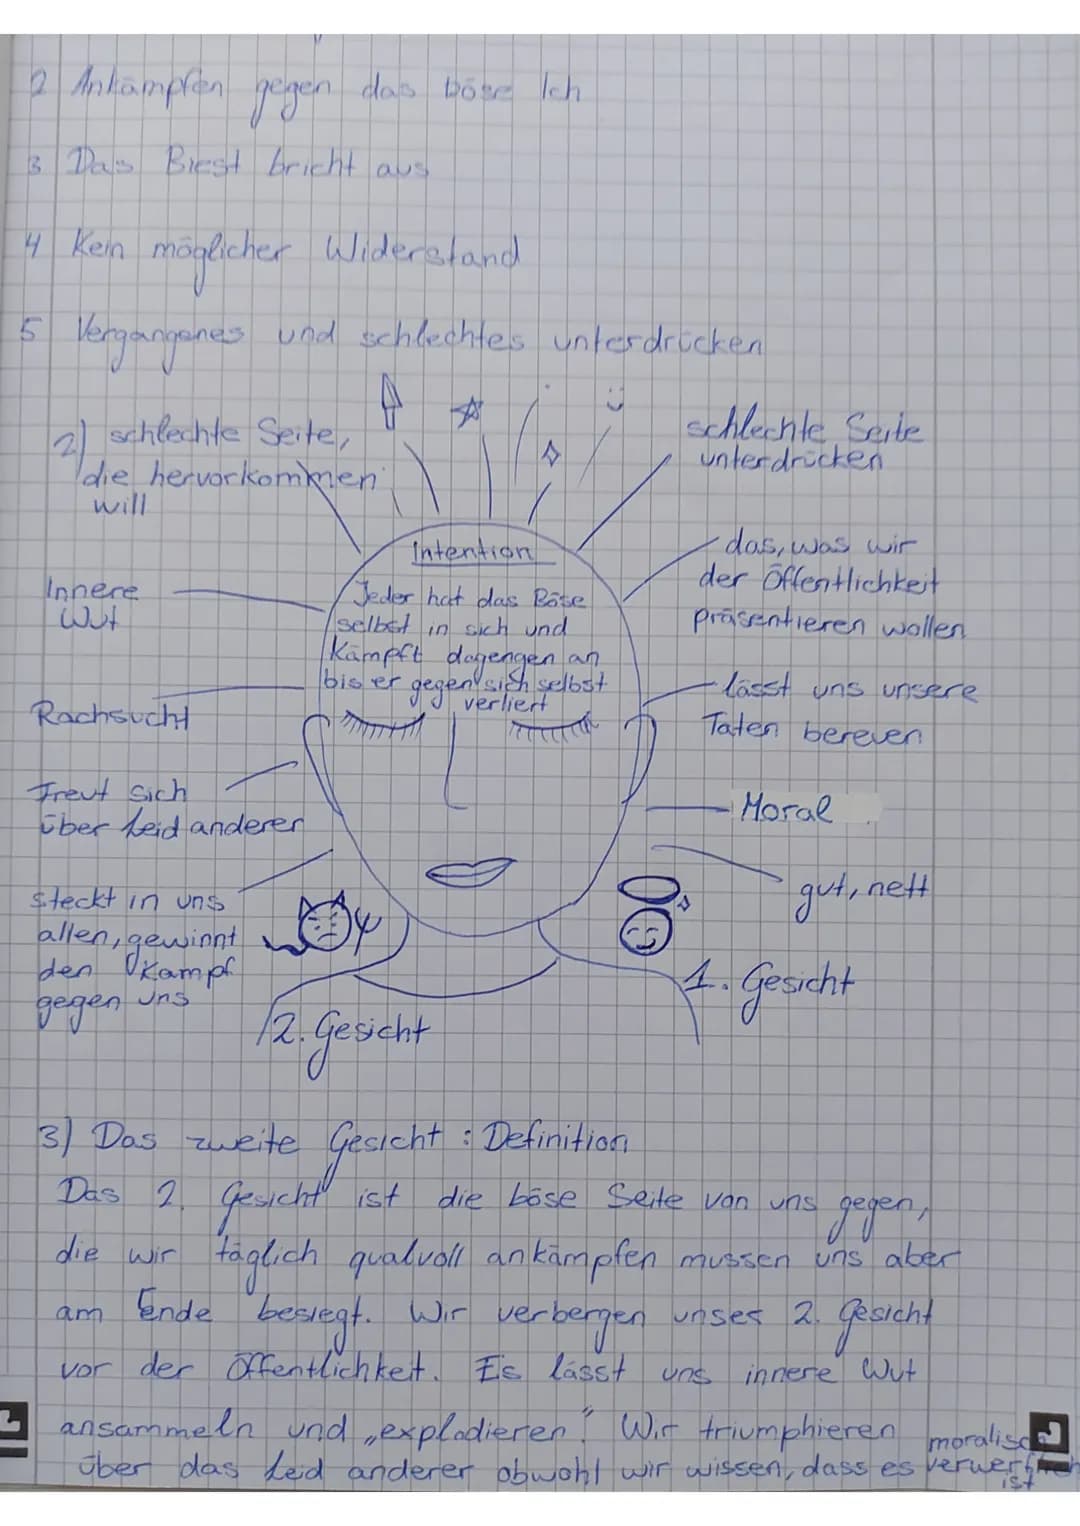 2 Ankämpfen gegen das böse Ich
3 Das Biest bricht aus
4 Kein möglicher Widerstand
5 Vergangenes und schlechtes unterdrücken
2) schlechte Seite,
die hervorkommen
will
Innere
Wut
Rachsucht
Freut sich
über Leid anderer
steckt in uns
allen, gewinnt
den Kampf
gegen uns
2. Gesicht
Intention
Jeder hat das Böse
selbst in sich und
kämpft dagengen an
bis er gegen sich selbst
verliert
schlechte Seite
unterdrücken
das, was wir
der Öffentlichkeit
präsentieren wollen
lässt uns unsere
Taten bereuen
Moral
gut, nett
1. Gesicht
3) Das zweite Gesicht: Definition
Das 2. Gesicht ist die böse Seite von uns gegen,
die wir täglich qualvoll ankämpfen mussen uns aber
am Ende besiegt. Wir verbergen unser 2. Gesicht
vor der Öffentlichkeit. Es lässt uns innere Wut
ansammeln und „explodieren“. Wir triumphieren
über das Leid anderer obwohl wir wissen, dass es moralisch verwerflich
ist